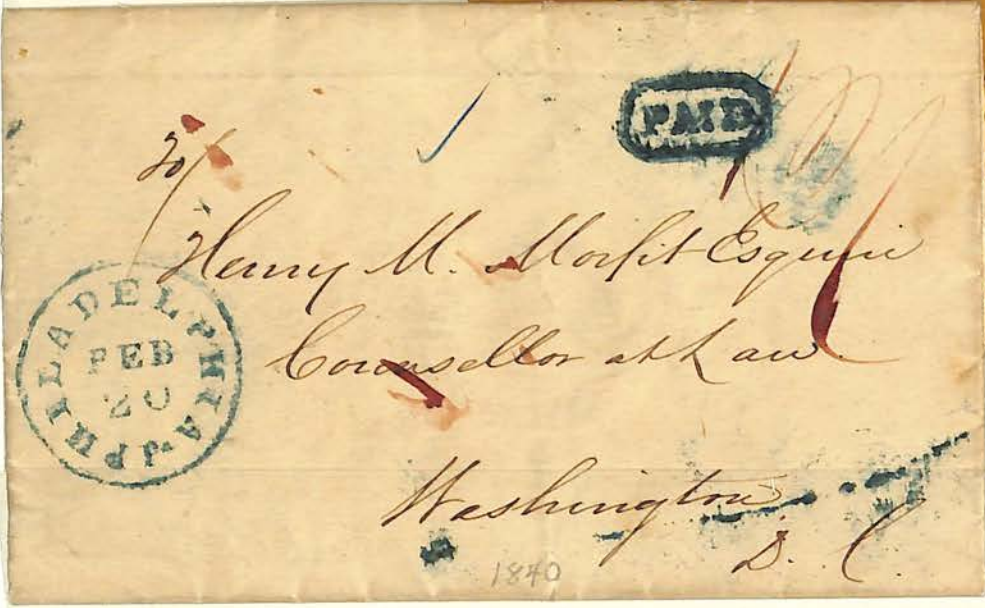 PAID
20/
Henry M. Morfit Esquire
Counsellor at Law
PHILADELPHIA Pa
FEB
20
Washington
D. C.
1840